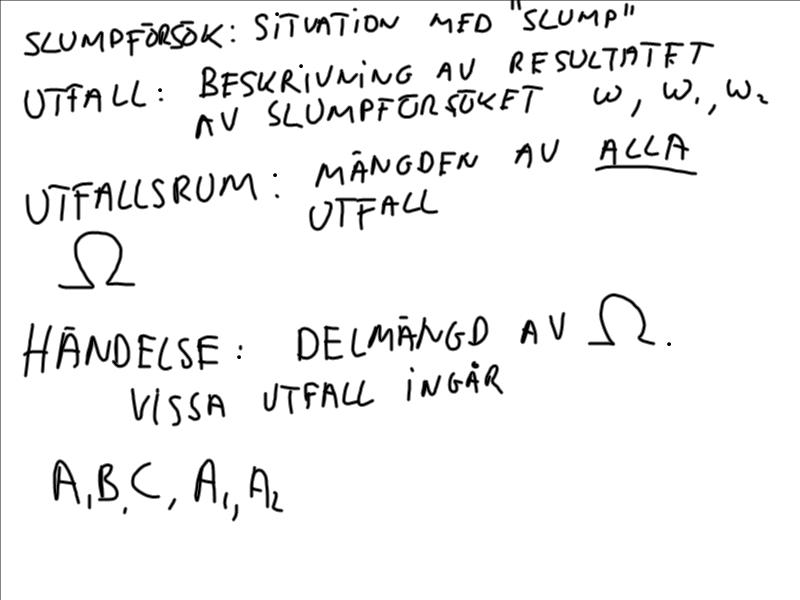 SLUMPFÖRSÖK: SITUATION MED "SLUMP"
UTFALL: BESKRIVNING AV RESULTATET
AV SLUMPFÖRSÖKET ω, ω₁, ω₂
UTFALLSRUM: MÄNGDEN AV ALLA
UTFALL
Ω
HÄNDELSE: DELMÄNGD AV Ω.
VISSA UTFALL INGÅR
A, B, C, A₁, A₂